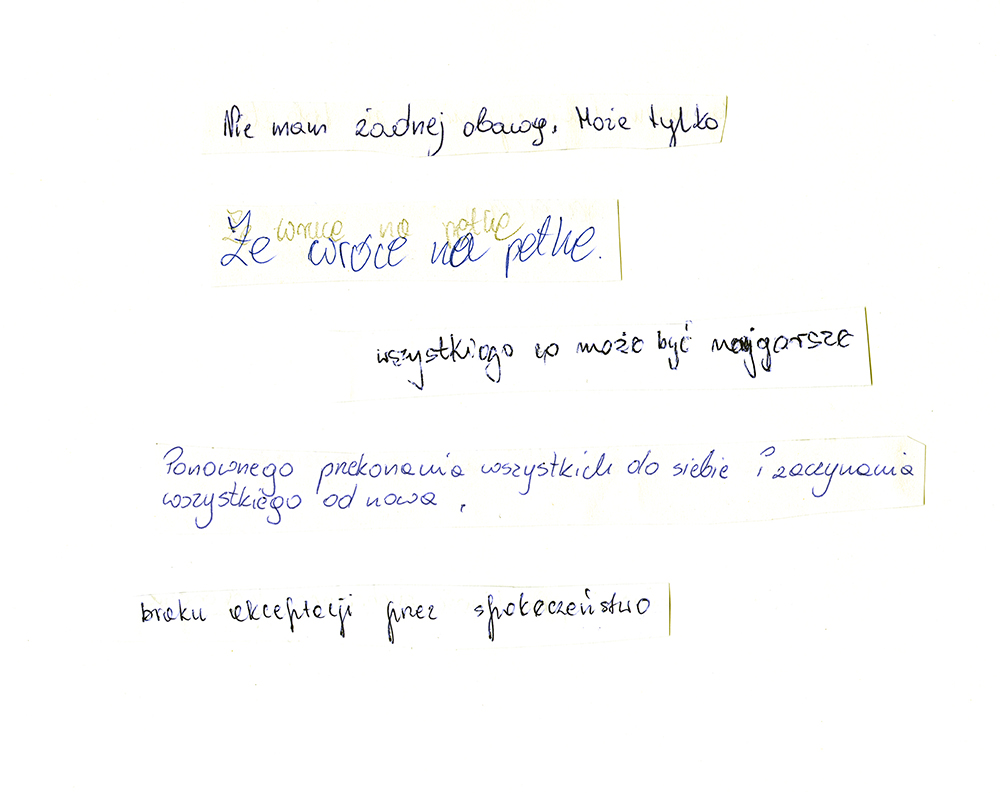 Nie mam żadnej obawy. Może tylko
Że wrócę na petkę.
wszystkiego co może być najgarsze
Ponownego przekonania wszystkich do siebie i zaczynania
wszystkiego od nowa.
braku akceptacji przez społeczeństwo